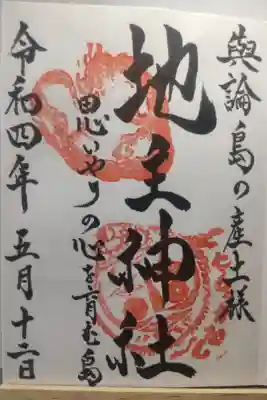 與論島の産土様
地主神社
思いやりの心を育む島
令和四年 五月十二日